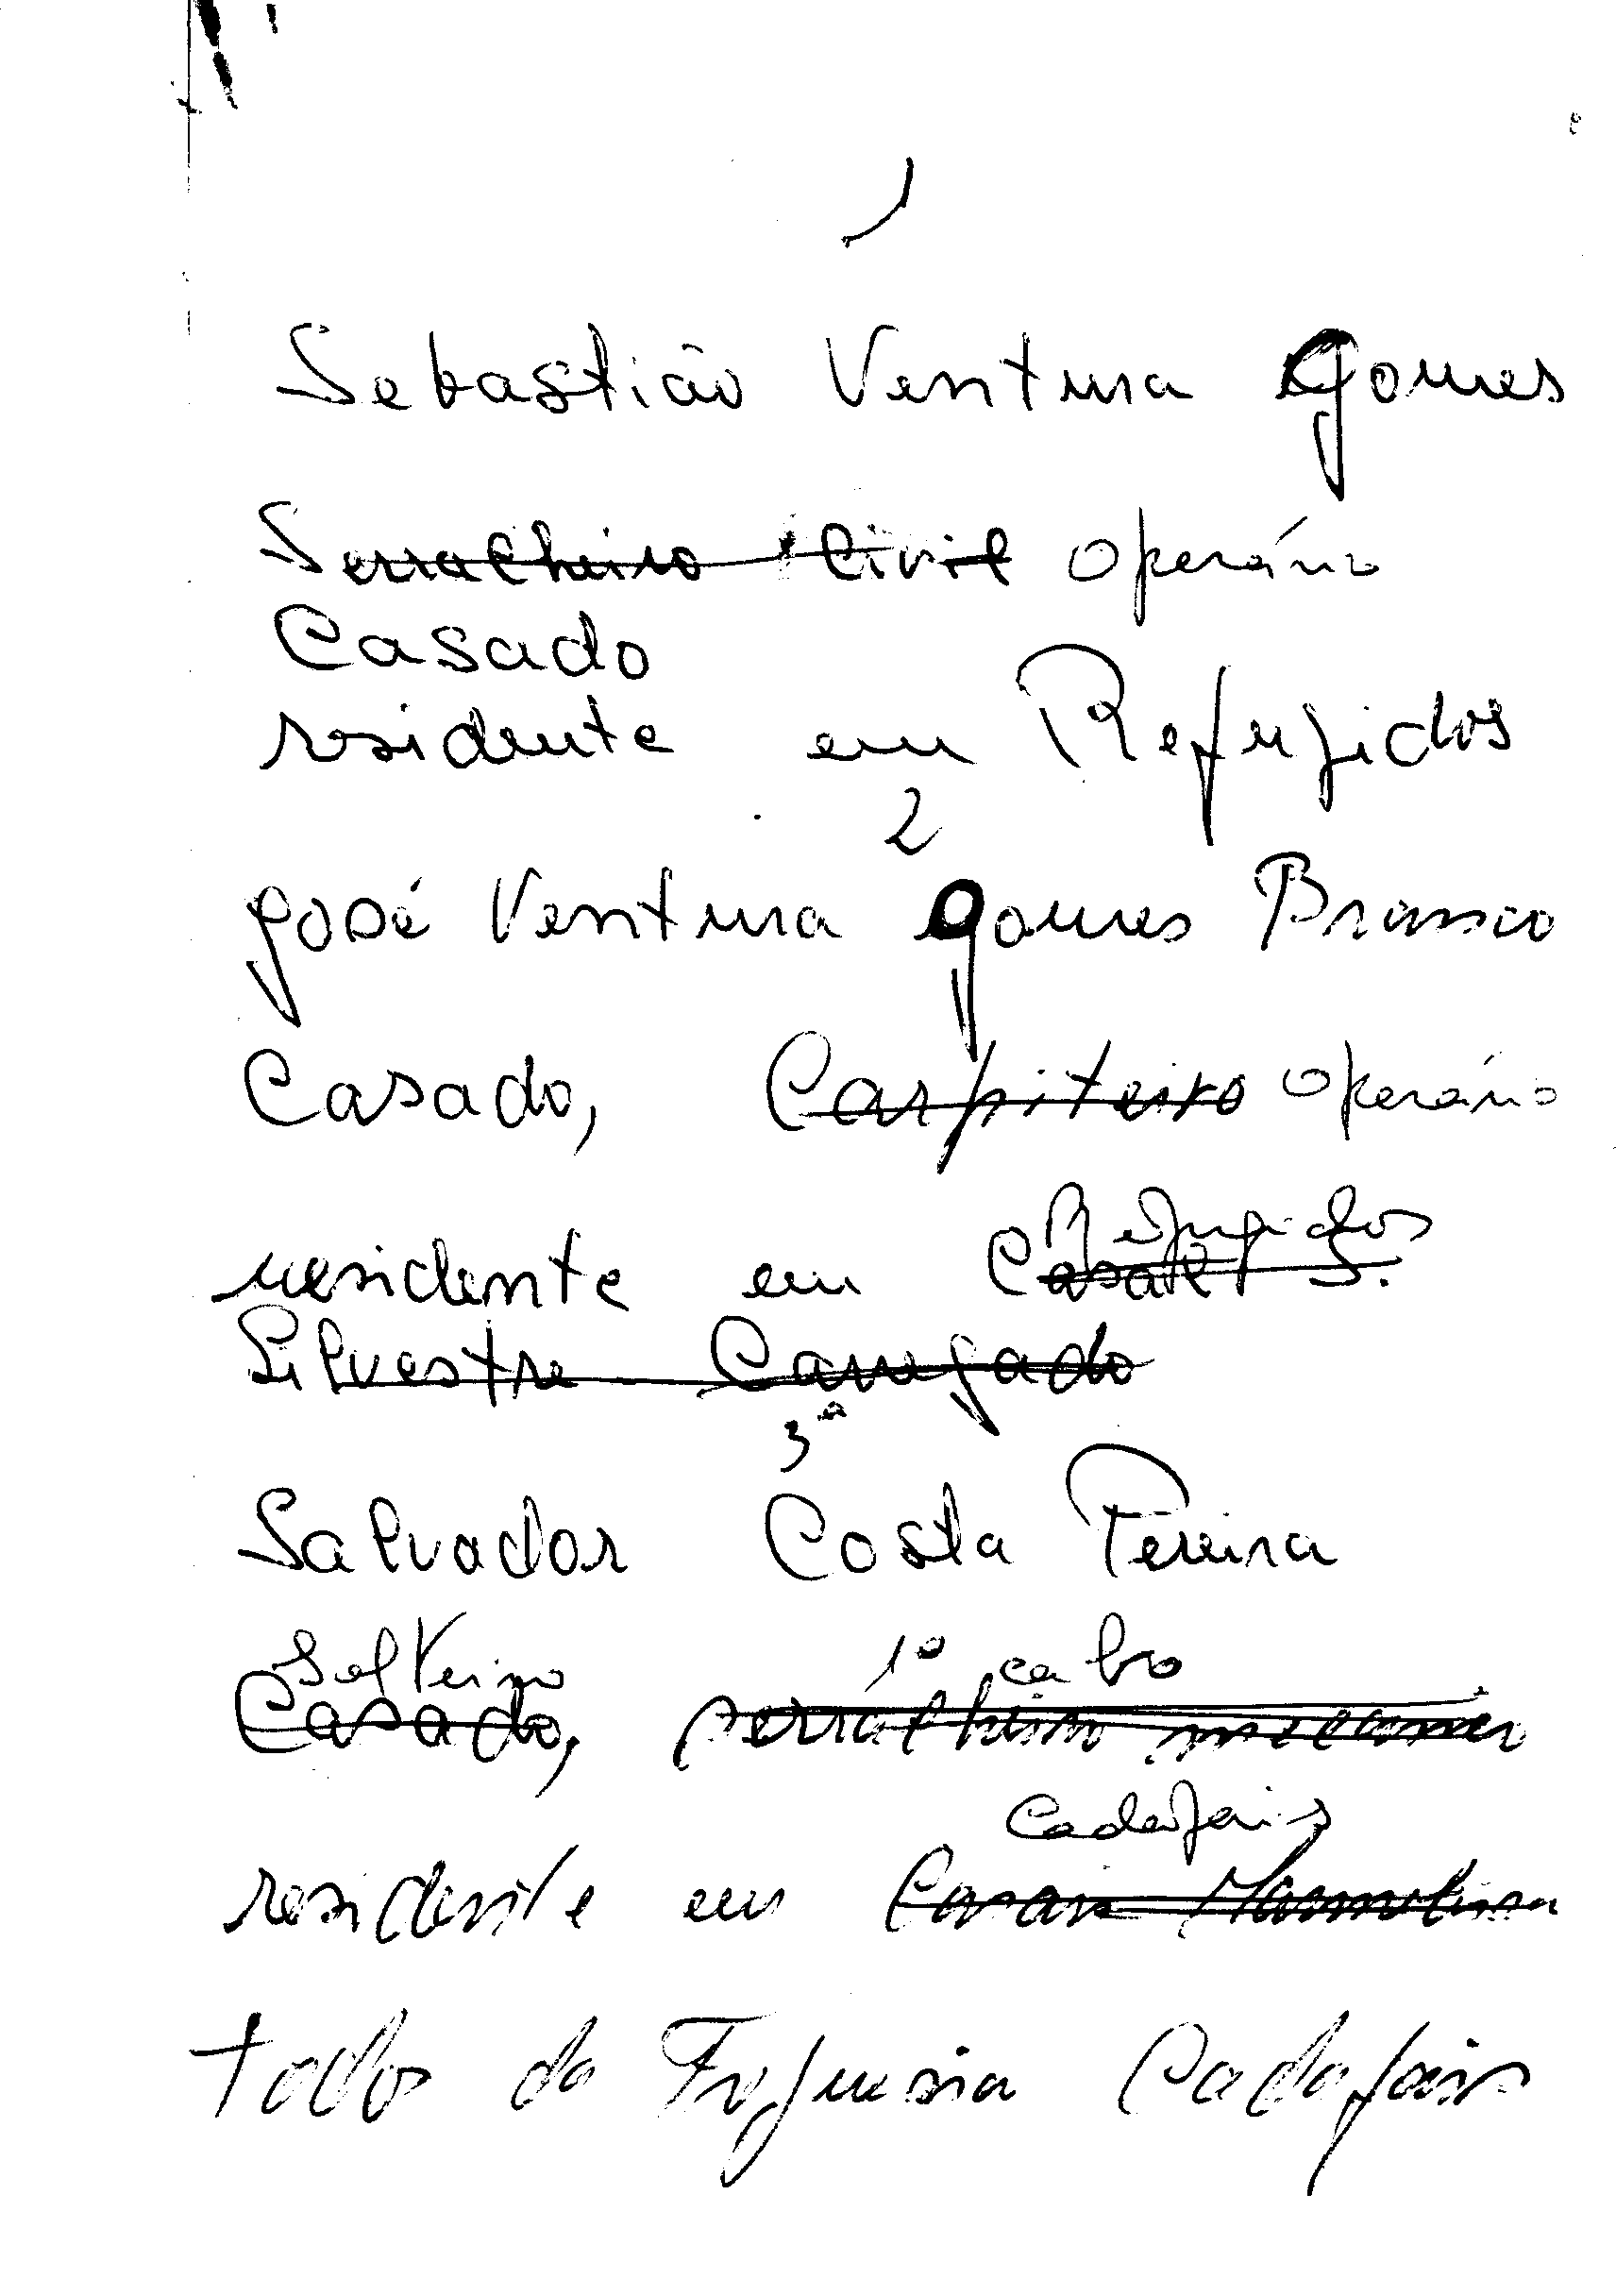 1
Sebastião Ventura Gomes
Serralheiro Civil operário
Casado
residente em Refugidos
2
José Ventura Gomes Branco
Casado, Carpiteiro operário
Refugidos
residente em Casal S.
Silvestre Carregado
3ª
Salvador Costa Pereira
Solteiro 1º cabo
Casado, serralheiro
Cadafais
residente em
todos da Freguesia Cadafais